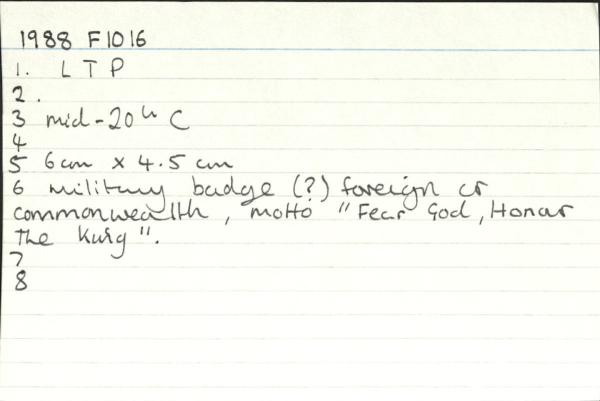 1988 F1016
1. L T P
2.
3 mid-20th C
4
5 6cm x 4.5 cm
6 military badge (?) foreign or
commonwealth, motto "Fear God, Honour
The King".
7
8